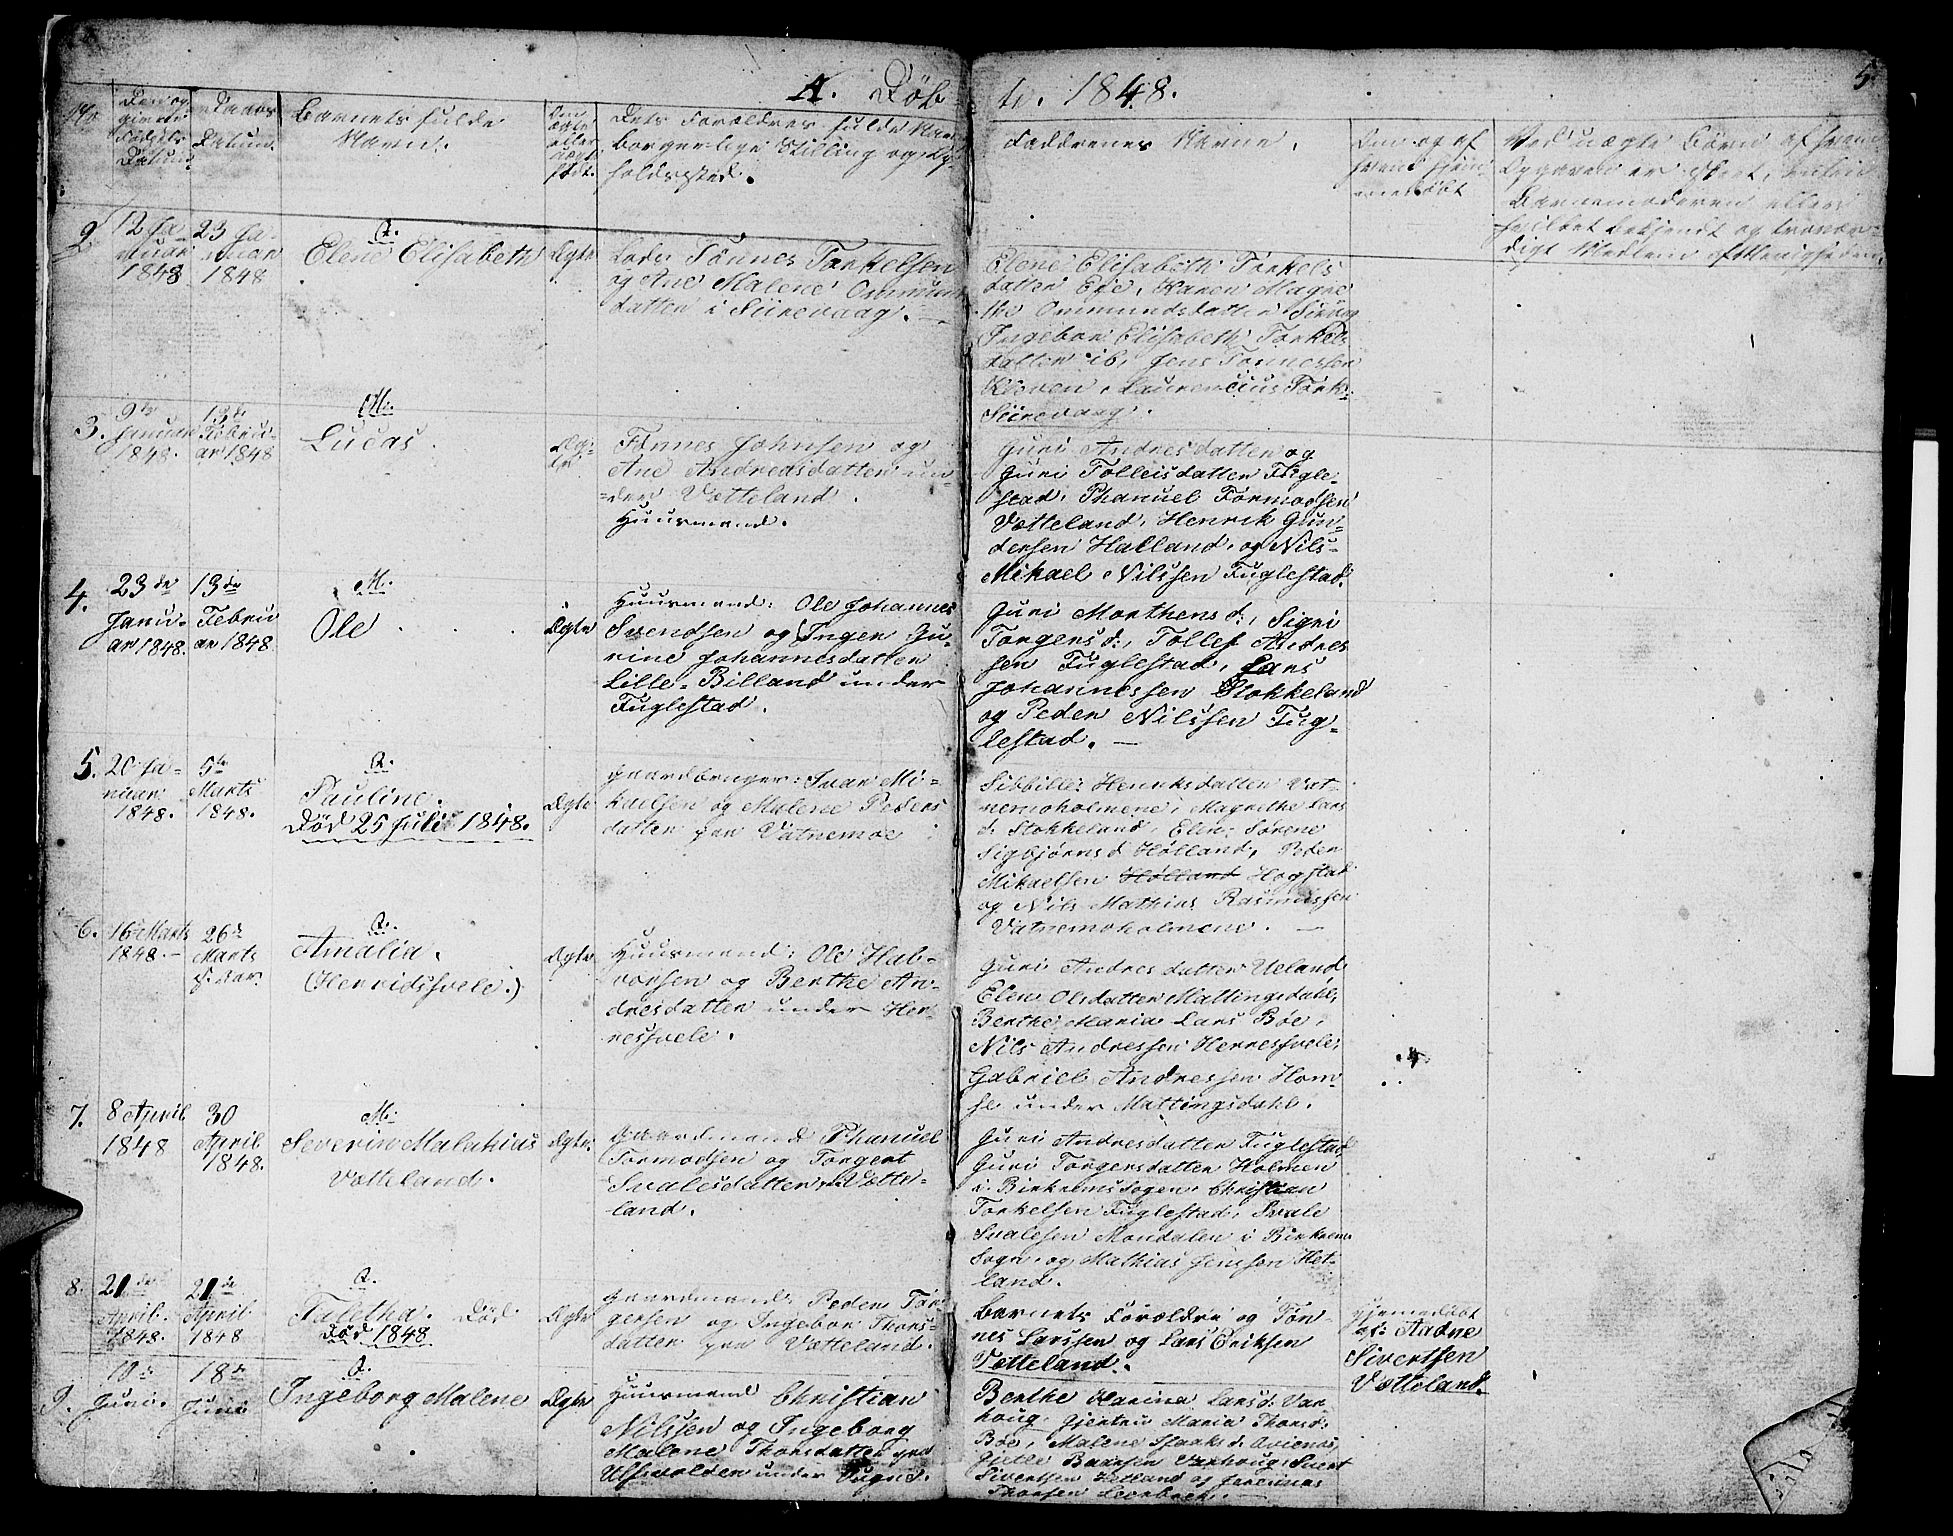 A. Døb
te. 1848.
5
No
Den og
givne
Fødsels
Datum
Daabs
Datum
Barnets fulde
Navn.
Om
ægte
eller
uægte
født.
Dets Forældres fulde Navn
borgerlige Stilling og Op-
holdssted.
Faddrenes Navne.
Om og af
hvem hjem-
medøbt
Ved uægte Børn af hvem
Opgaven er skeet, enten
Barnemoderen eller
hvilket bekjendt og trovær-
digt Medlem af Menigheden.
2
12 Ja-
nuar
1848
23 Ja-
nuar
1848
Q.
Elene Elisabeth
Ægte
Lods: Tønnes Torkelsen
og Ane Malene Ommunds
datter i Siirevaag.
Elene Elisabeth Torkels
datter Eie, Karen Magre
the Ommundsdatter Sirevaag
Ingebor Elisabeth Torkels
datter ib, Jens Tønnessen
Kleven, Laurencius Tork:
Siirevaag.
3.
9de
Januar
1848.
13de
Febru-
ar 1848
M.
Lucas.
Æg-
te
Tønnes Johnsen og
Ane Andreasdatter un-
der Vætteland.
Huusmand.
Guri Andresdatter og
Guri Tolleisdatter Fugle-
stad, Phanuel Tormodsen
Vætteland, Henrik Gun-
dersen Halland, og Nils-
Mikael Nilssen Fuglestad.
4.
23de
Janu-
ar 1848.
13de
Febru
ar 1848
M.
Ole
Ægte
Huusmand: Ole Johannes
Svendsen og Inger Gu-
rine Johannesdatter
Lille-Billand under
Fuglestad.
Guri Morthensd:, Sigri
Torgersd:, Tollef Andres
sen Fuglestad, Lars
Johannessen Stokkeland
og Peder Nilssen Fug-
lestad.
5.
20 Ja-
nuar
1848.
5te
Marts
1848.
Q.
Pauline.
Død 25 Juli 1848.
Ægte
Gaardbruger: Ivar Mi-
kaelsen og Malene Peders
datter paa Vatnemoe
Sibbille Henriksdatter Vat-
nemoholmene, Magrethe Lars
d. Stokkeland, Elen Sørene
Sigbjørnsd Hølland, Peder
Mikaelsen Hølland Høgstad
og Nils Mathias Rasmussen
Vatnemoholmene.
6.
16 Marts
1848.
26de
Marts
Q.
Amalia.
(Herridsvele.)
Ægte
Huusmand: Ole Hal-
vorsen og Berthe An-
dresdatter under Her-
resvele.
Guri Andresdatter Ueland,
Elen Olsdatter Mattingsdahl,
Berthe Maria Lars Bøe,
Nils Andressen Herresvele,
Gabriel Andressen Hom-
se under Mattingsdahl.
7.
8 April
1848
30
April
1848.
M.
Severin Malakias
Vætteland.
Ægte
Gaardmand Phanuel
Tormodsen og Torgert
Svalesdatter Vætte-
land.
Guri Andresdatter Fuglestad,
Guri Torgersdatter Holmen
i Birkrems Sogn, Christian
Torkelsen Fuglestad, Svale
Svalesen Mondalen i Birkrems
Sogn, og Mathias Jenssen Het-
land.
8.
21de
April.
1848.
21de
April
1848
Q.
Talitha. Død.
Død 1848
Ægte
Gaardmand: Peder Tor-
gersen og Ingebor Thors-
datter paa Vætteland.
Barnets Forældre og Tøn-
nes Larssen og Lars Eriksen
Vetteland.
hjemedøbt
af: Aadne
Sivertsen
Vætteland.
9.
10de
Juni.
18de
Juni.
Q.
Ingeborg Malene
Ægte
Huusmand Christian
Nilssen og Ingeborg
Malene Thorsdatter paa
Ulfsvolden under
Berthe Karina Larsd: Var
houg, Gjertru Maria Thorsd:
Bøe, Malene Isaaksd.
Gjetle Baarsen Varhoug, Sivert
Sivertsen Hetland og
Thorsen